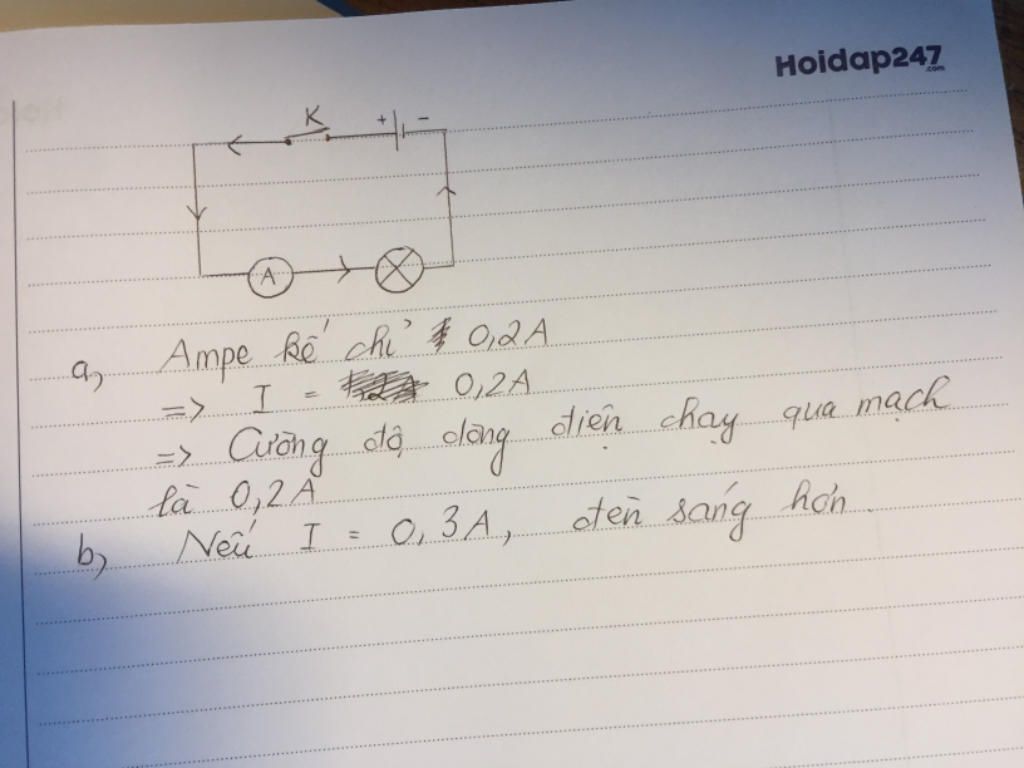 Hoidap247
.com
K
+ -
A
a, Ampe kế chỉ 0,2A
=> I = 0,2A
=> Cường độ dòng điện chạy qua mạch
là 0,2A
b, Nếu I = 0,3A, đèn sáng hơn.